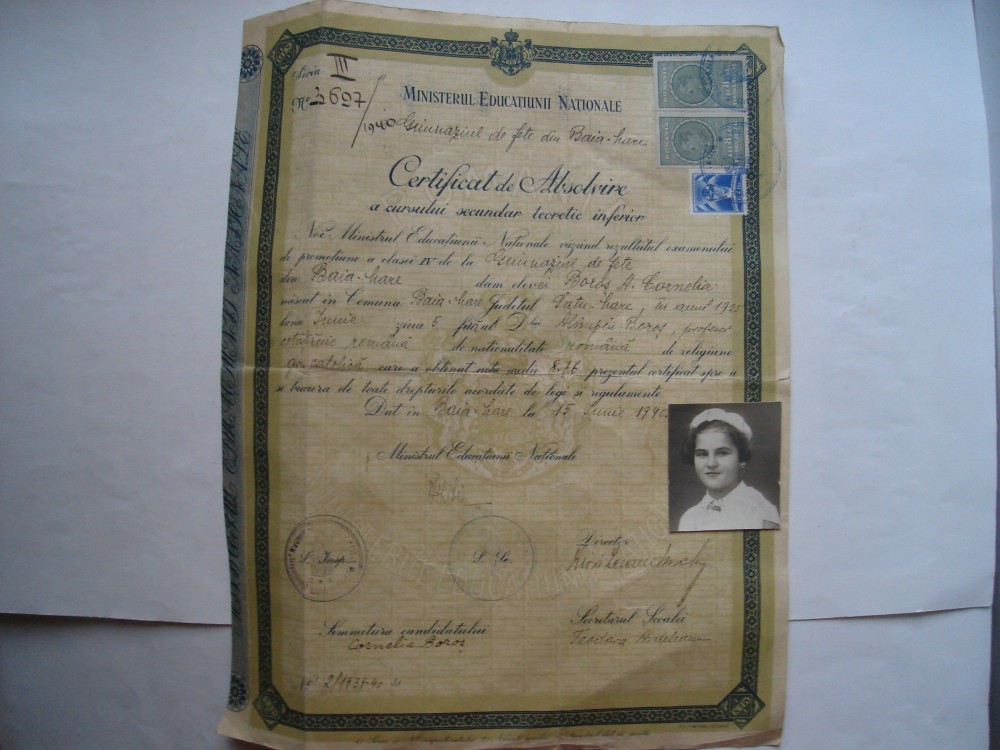 Seria III
No 3697/1940
MINISTERUL EDUCATIUNII NAȚIONALE
Gimnaziul de fete din Baia-Mare
Certificat de Absolvire
a cursului secundar teoretic inferior
Noi Ministrul Educațiunii Naționale văzând rezultatul examenului
de promoțiune a clasei IV de la Gimnaziul de fete
din Baia-Mare dam elevei Boroș A. Cornelia
născut în Comuna Baia-Mare Județul Satu-Mare, în anul
luna Iunie ziua 5 fiind D-lui Boroș, profesor
cetățenie română de naționalitate română de religiune
gr. catolică care a obținut nota medie 8.76 prezentul certificat spre a
se bucura de toate drepturile acordate de legi și regulamente
Dat în Baia-Mare la 15 Iunie 1940
Ministrul Educațiunii Naționale
L. Insp. L. Șc. Director
Semnătura candidatului Secretarul Școalii
Cornelia Boroș Teodora
No 2/1939-40